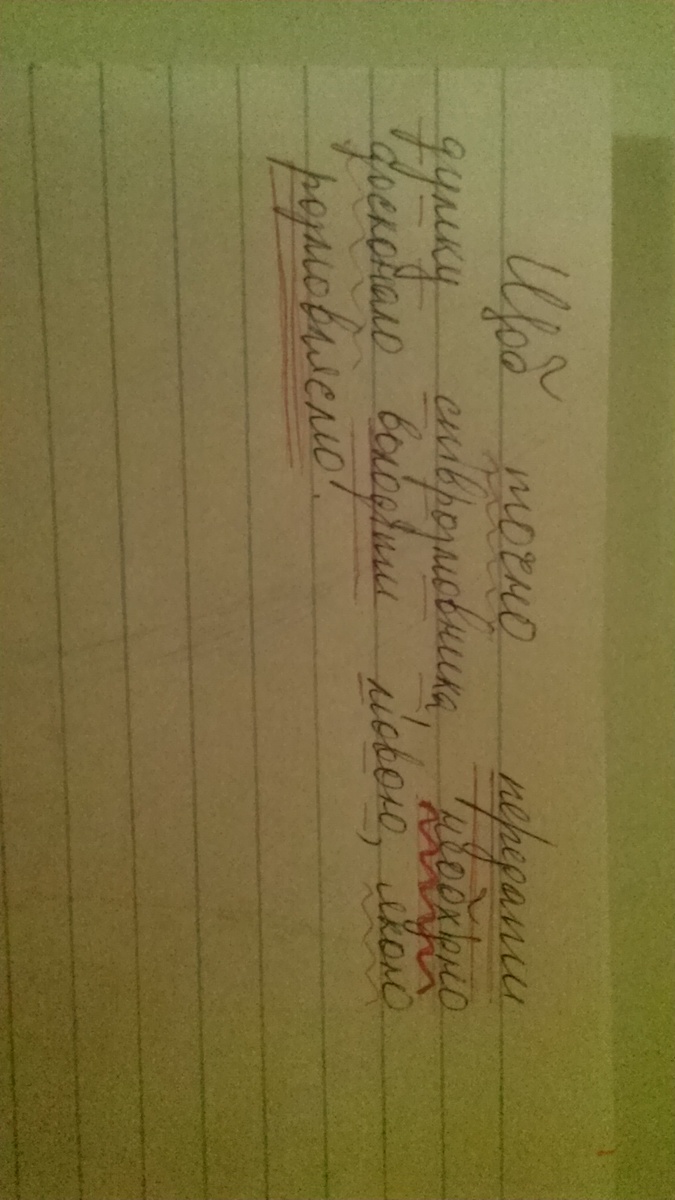 Щоб точно передати
думку співрозмовника, необхідно
досконало володіти мовою, якою
розмовляємо.